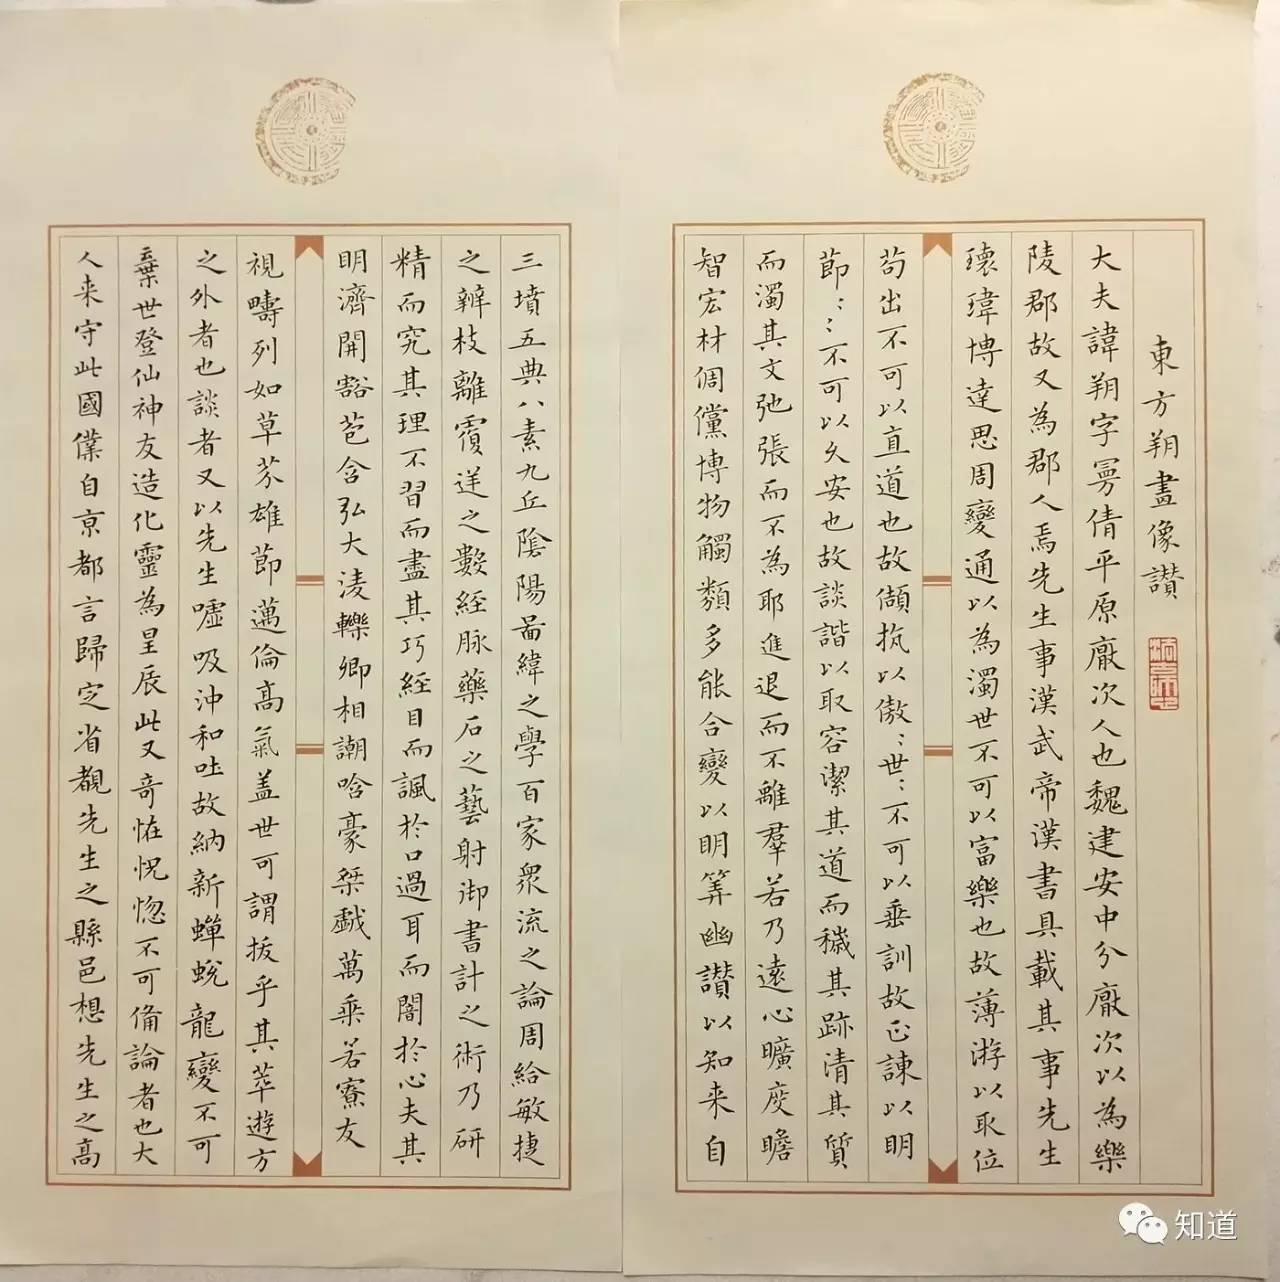 東方朔畫像讚
大夫諱朔字曼倩平原厭次人也魏建安中分厭次以為樂
陵郡故又為郡人焉先生事漢武帝漢書具載其事先生
瓌瑋博達思周變通以為濁世不可以富樂也故薄游以取位
苟出不可以直道也故傾抗以傲〻世〻不可以垂訓故正諫以明
節〻〻不可以久安也故談諧以取容潔其道而穢其跡清其質
而濁其文弛張而不為耶進退而不離羣若乃遠心曠度瞻
智宏材倜儻博物觸類多能合變以明筭幽讚以知来自
三墳五典八素九丘陰陽啚緯之學百家衆流之論周給敏捷
之辨枝離覆逆之數經脉藥石之藝射御書計之術乃研
精而究其理不習而盡其巧經目而諷扵口過耳而闇扵心夫其
明濟開豁苞含弘大淩轢卿相謿哈豪桀戱萬乘若寮友
視疇列如草芥雄節邁倫高氣盖世可謂拔乎其萃遊方
之外者也談者又以先生噓吸沖和吐故納新蟬蛻龍變不可
棄世登仙神友造化靈為星辰此又奇恠怳惚不可俻論者也大
人来守此國僕自京都言歸定省覩先生之縣邑想先生之高
知道